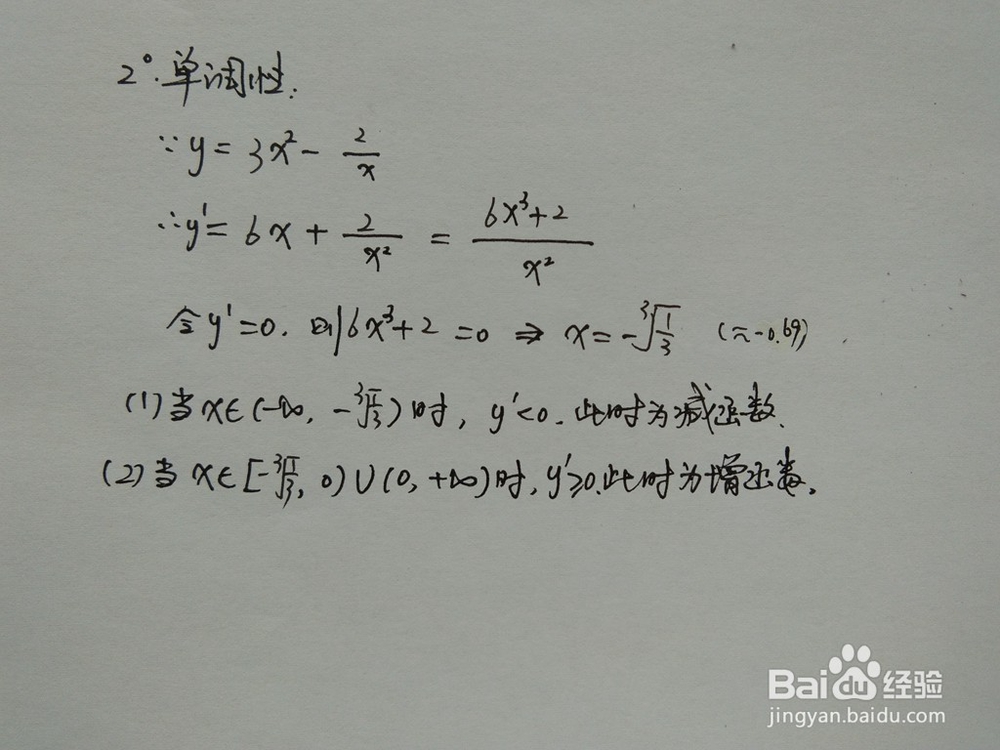 2°.单调性:
∵y = 3x² - 2/x
∴y' = 6x + 2/x² = (6x³+2)/x²
令y'=0. 则6x³+2=0 ⇒ x=-∛(1/3) (≈-0.69)
(1)当x∈(-∞, -∛(1/3))时, y'<0. 此时为减函数.
(2)当x∈[-∛(1/3), 0)∪(0, +∞)时, y'≥0.此时为增函数.
Baidu经验
jingyan.baidu.com